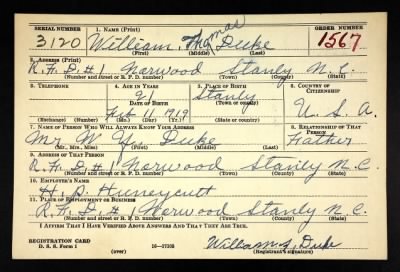 SERIAL NUMBER 1. NAME (Print) ORDER NUMBER
3120 William Thomas Duke 1567
(First) (Middle) (Last)
2. ADDRESS (Print)
R.F.D.#1 Norwood Stanly N.C.
(Number and street or R. F. D. number) (Town) (County) (State)
3. TELEPHONE 4. AGE IN YEARS 5. PLACE OF BIRTH 6. COUNTRY OF CITIZENSHIP
21 Stanly
DATE OF BIRTH (Town or county)
Feb 1919 N.C. U.S.A.
(Exchange) (Number) (Mo.) (Day) (Yr.) (State or country)
7. NAME OF PERSON WHO WILL ALWAYS KNOW YOUR ADDRESS 8. RELATIONSHIP OF THAT PERSON
Mr. W. Duke Father
(Mr., Mrs., Miss) (First) (Middle) (Last)
9. ADDRESS OF THAT PERSON
R.F.D.#1 Norwood Stanly N.C.
(Number and street or R. F. D. number) (Town) (County) (State)
10. EMPLOYER'S NAME
H. D. Huneycutt
11. PLACE OF EMPLOYMENT OR BUSINESS
R.F.D.#1 Norwood Stanly N.C.
(Number and street or R. F. D. number) (Town) (County) (State)
I AFFIRM THAT I HAVE VERIFIED ABOVE ANSWERS AND THAT THEY ARE TRUE.
REGISTRATION CARD
D. S. S. Form 1 (over) William Duke
(Registrant's signature)